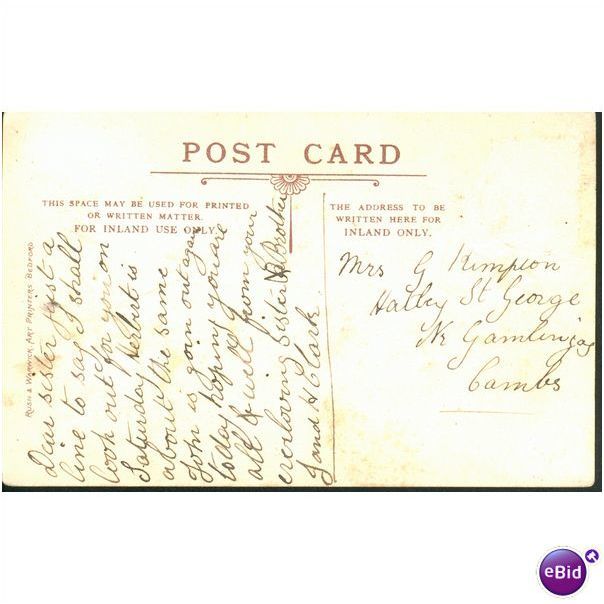 POST CARD
THIS SPACE MAY BE USED FOR PRINTED
OR WRITTEN MATTER.
FOR INLAND USE ONLY.
THE ADDRESS TO BE
WRITTEN HERE FOR
INLAND ONLY.
RUSH & WARWICK, ART PRINTERS BEDFORD
Dear sister Just a
line to say I shall
look out for you on
Saturday Herbut is
about the same
John is goin out again
today hoping you are
all well from your
everloving sister & Brother
J and H Clark
Mrs G Kimpton
Hatley St George
Nr Gamlingay
Cambs
eBid